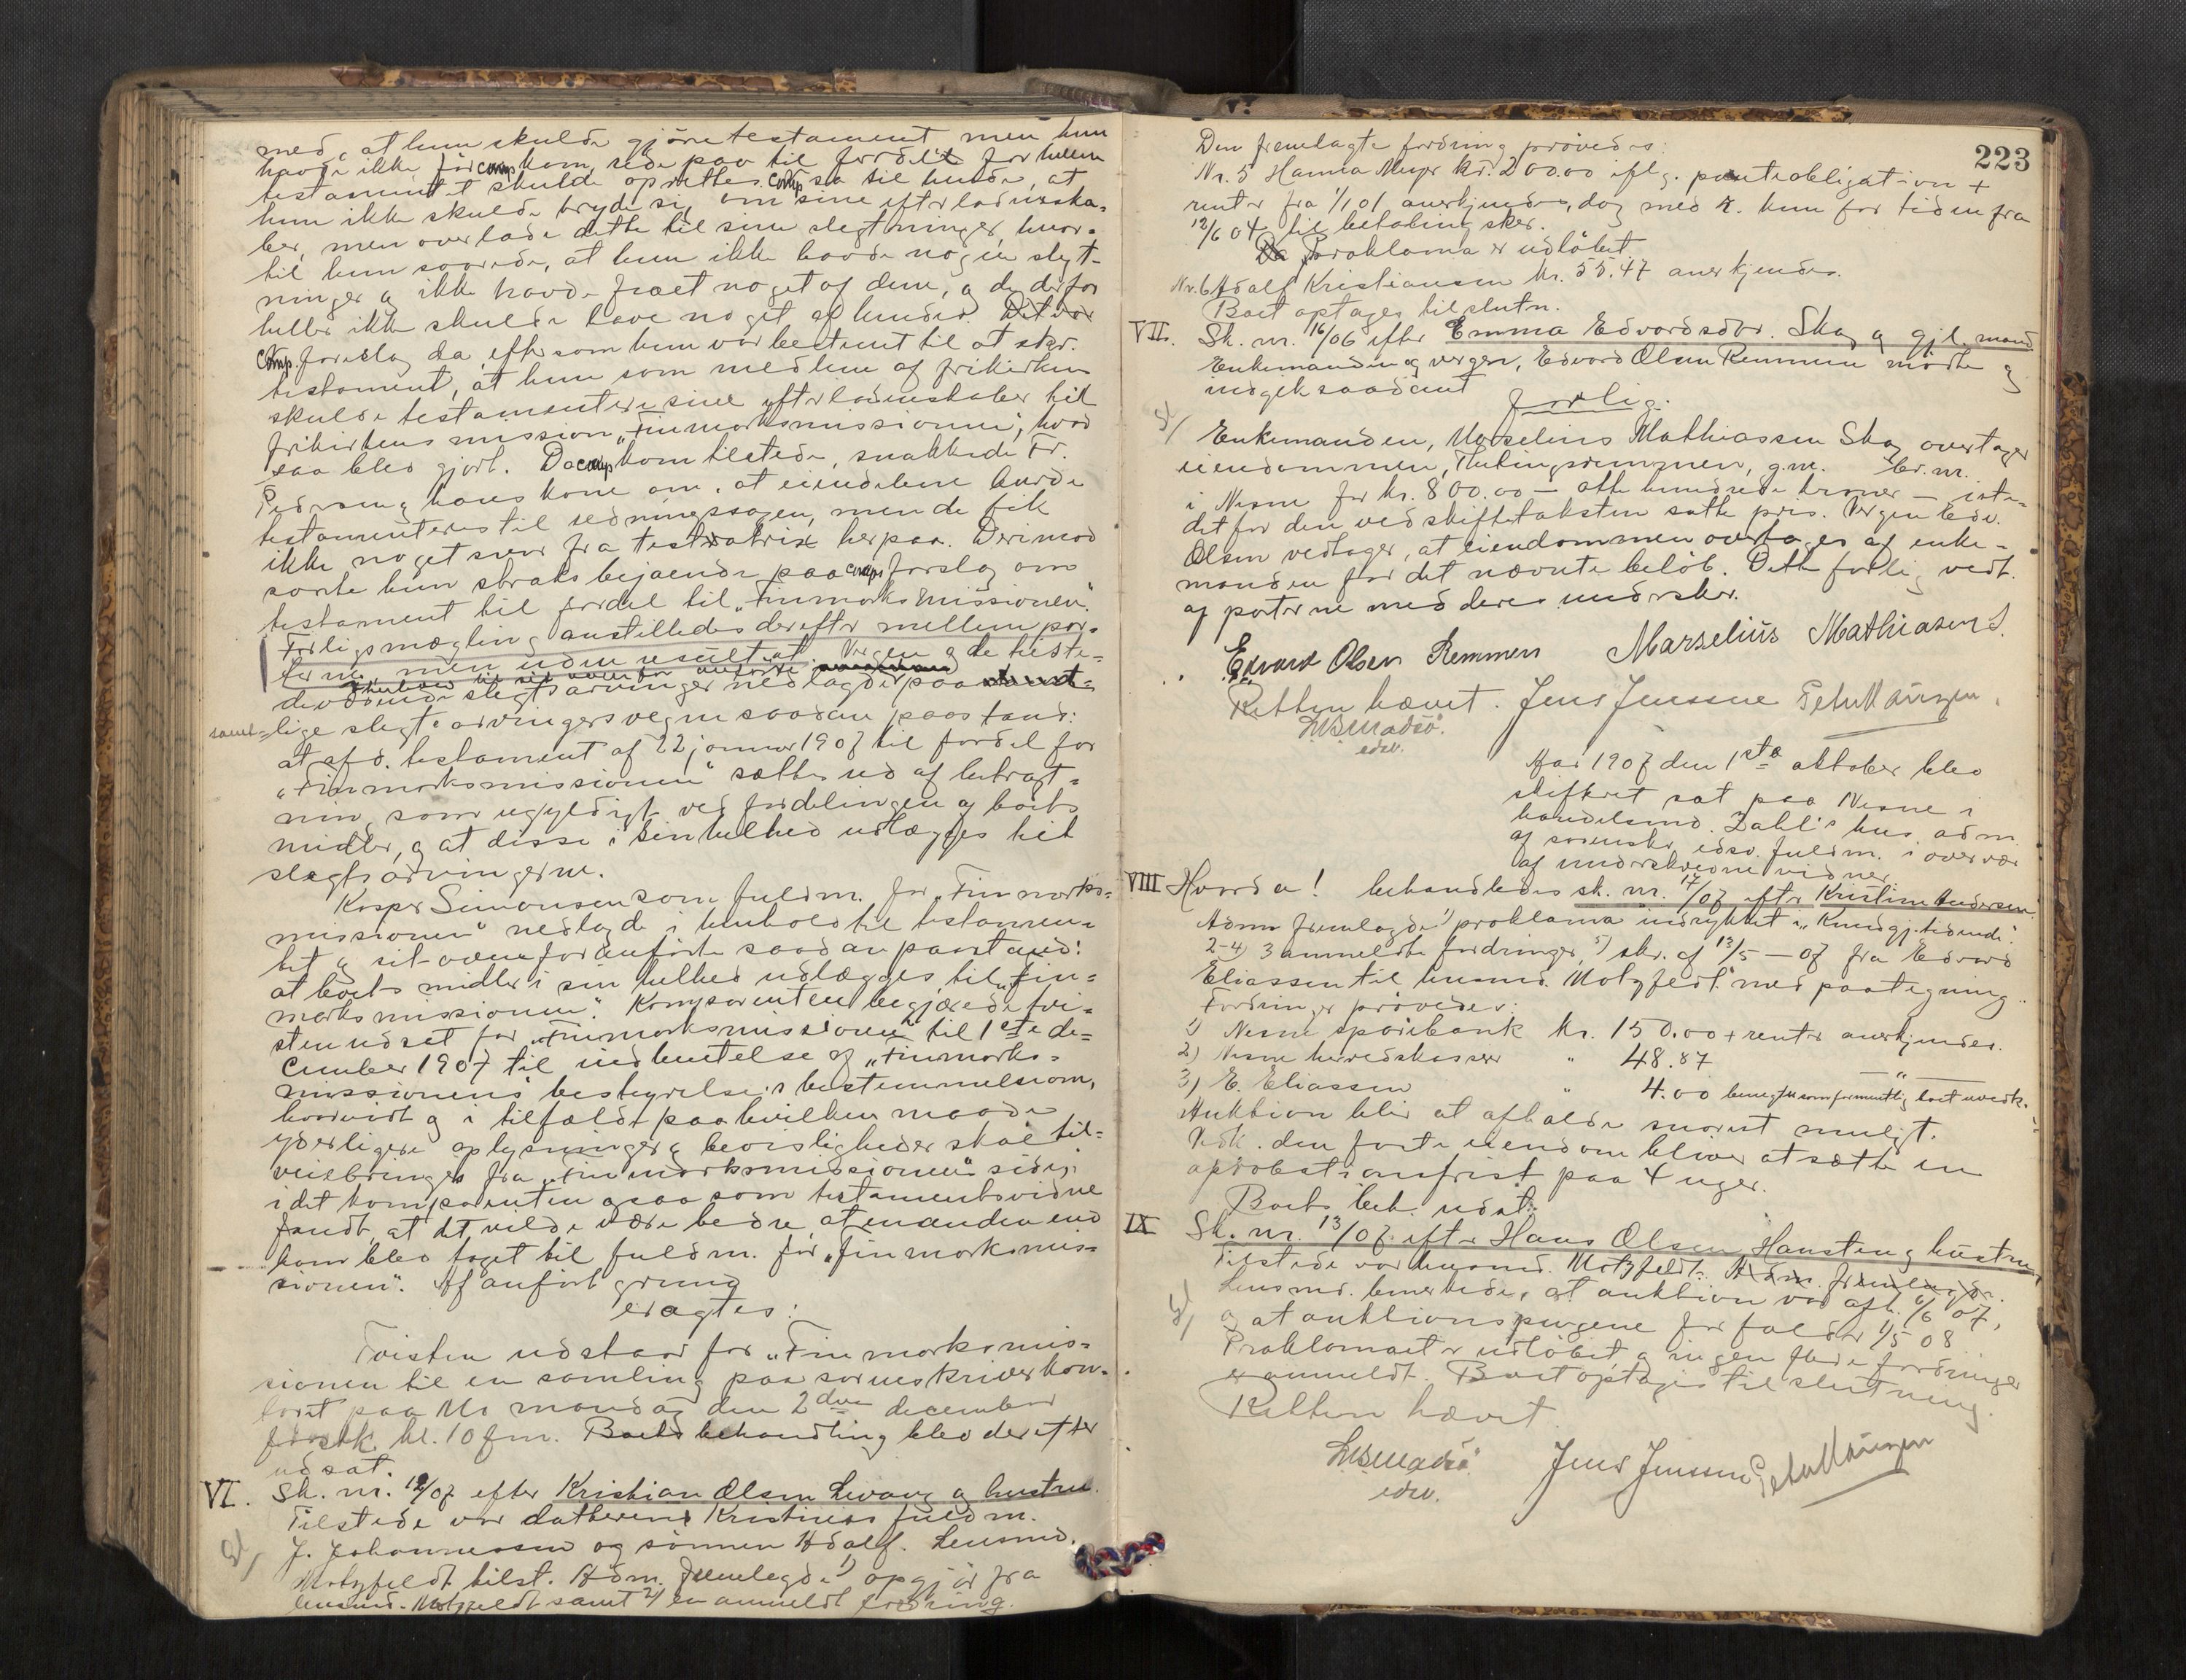 med, at hun skulde gjøre testament men hun
havde ikke før comp. kom, rede paa til fordel for hvem
testamentet skulde oprettes. Comp. sa til hende, at
hun ikke skulde bryde sig om sine efterladenska-
ber, men overlade dette til sine slegtninger, hvor-
til hun svarede, at hun ikke havde nogen slegt-
ninger og ikke havde faaet noget af dem, og de derfor
heller ikke skulde have noget af hende. Det var
Comp. foreslog da eftersom hun var bestemt til at skr.
testament, at hun som medlem af frikirken
skulde testamentere sine efterladenskaber til
frikirkens mission „Finmarksmissionen", hvad
saa blev gjort. Da comp kom tilstede, snakkede Fr.
Pedersen og hans kone om, at eiendelene burde
testamenteres til redningssagen, men de fik
ikke noget svar fra testratrix herpaa. Derimod
svarte hun straks bejaende paa comps forslag om
testament til fordel til „Finmarksmissionen".
Forligsmægling anstilledes derefter mellem par-
terne men uden resultat. Vergen og de tilste-
deværende slegtsarvinger nedlagde paa
samt-lige slegtsarvingers vegne saadan paastand:
at afd. testament af 22 januar 1907 til fordel for
„Finmarksmissionen" sættes ud af betragt-
ning som ugyldigt ved fordelingen af boets
midler, og at disse i sin helhed udlægges til
slegtsarvingerne.
Kasper Simonsen som fuldm. for „Finmarks-
missionen" nedlagde i henhold til testamen-
tet og sit ovenfor anførte saadan paastand:
at boets midler i sin helhed udlægges til „Fin-
marksmissionen". Komparenten begjærede tvi-
sten udsat for „Finmarksmissionen" til 1ste de-
cember 1907 til indhentelse af „Finmarks-
missionens" bestyrelses bestemmelse om,
hvorvidt og i tilfælde paa hvilken maade
yderligere oplysninger og bevisligheder skal til-
veiebringes fra „Finmarksmissionens" side,
idet komparenten ogsaa som testamentsvidne
fandt, at det vilde være bedre, at en anden end
ham blev taget til fuldm. for „Finmarksmis-
sionen". Af anført grund
eragtes:
Tvisten udstaar for „Finmarksmis-
sionen til en samling paa sorenskriverkon-
toret paa Mo mandag den 2den december
førstk. kl. 10 fm. Boets behandling blev derefter
udsat.
VI. Sk. nr. 12/07 efter Kristian Olsen Levang og hustru.
Tilstede var datteren Kristines fuldm.
J. Johannessen og sønnen Adolf. Lensmd.
Motzfeldt tilst. Adm. fremlagde 1) opgjør fra
lensmd. Motzfeldt samt 2) en anmeldt fordring.
223
Den fremlagte fordring prøvedes:
Nr. 5 Hanna Meyer kr. 200.00 iflg. panteobligation +
renter fra 1/1 01 anerkjendes, dog med r. kun for tiden fra
12/6 04 til betaling sker.
Proklama er udløbet
Nr. 6 Adolf Kristiansen kr. 55.47 anerkjendes.
Boet optages til slutn.
VII. Sk. nr. 16/06 efter Emma Edvardsdtr. Skog og gjl. mand
Enkemanden og vergen, Edvard Olsen Remmen mødte og
indgik saadant
forlig:
Enkemanden, Marselius Mathiassen Skog overtager
eiendommen, g.nr. br.nr.
i Nesne for kr. 800.00 – otte hundrede kroner – iste-
det for den ved skiftetaksten satte pris. Vergen Edv.
Olsen vedtager, at eiendommen overtages af enke-
manden for det nævnte beløb. Dette forlig vedt.
af parterne med deres underskr.
Edvard Olsen Remmen Marselius Mathiasen S.
Retten hævet. Jens Jenssen
edsv.
Aar 1907 den 1ste oktober blev
skifteret sat paa Nesne i
handelsmd. Zahl's hus adm.
af sorenskr. edsv. fuldm. i overvær
af underskrevne vidner
VIII Hvorda! behandledes sk. nr. 17/07 efter Kristine Andersen.
Adm. fremlagde 1) proklama indrykket i „Kundgj.tidende".
2-4) 3 anmeldte fordringer, 5) skr. af 13/5 – 07 fra Edvard
Eliassen til lensmd. Motzfeldt med paategning.
Fordringer prøvedes:
1) Nesne sparebank kr. 150.00 + renter anerkjendes.
2) Nesne herredskasserer " 48.87 — " —
3) E. Eliassen " 4.00
Auktion blir at afholde snarest muligt.
Vedk. den faste eiendom bliver at sætte en
approbationsfrist paa 4 uger.
Boets beh. udst.
IX Sk. nr. 13/07 efter Hans Olsen Hansteng hustru,
Tilstede var lensmd. Motzfeldt. Adm. fremlagde.
Lensmd. bemerkede, at auktion var afh. 6/6 07,
og at auktionspengene forfalder 1/5 08
Proklamaet er udløbet, og ingen flere fordringer
er anmeldt. Boet optages til slutning.
Retten hævet
Jens Jenssen
edsv.